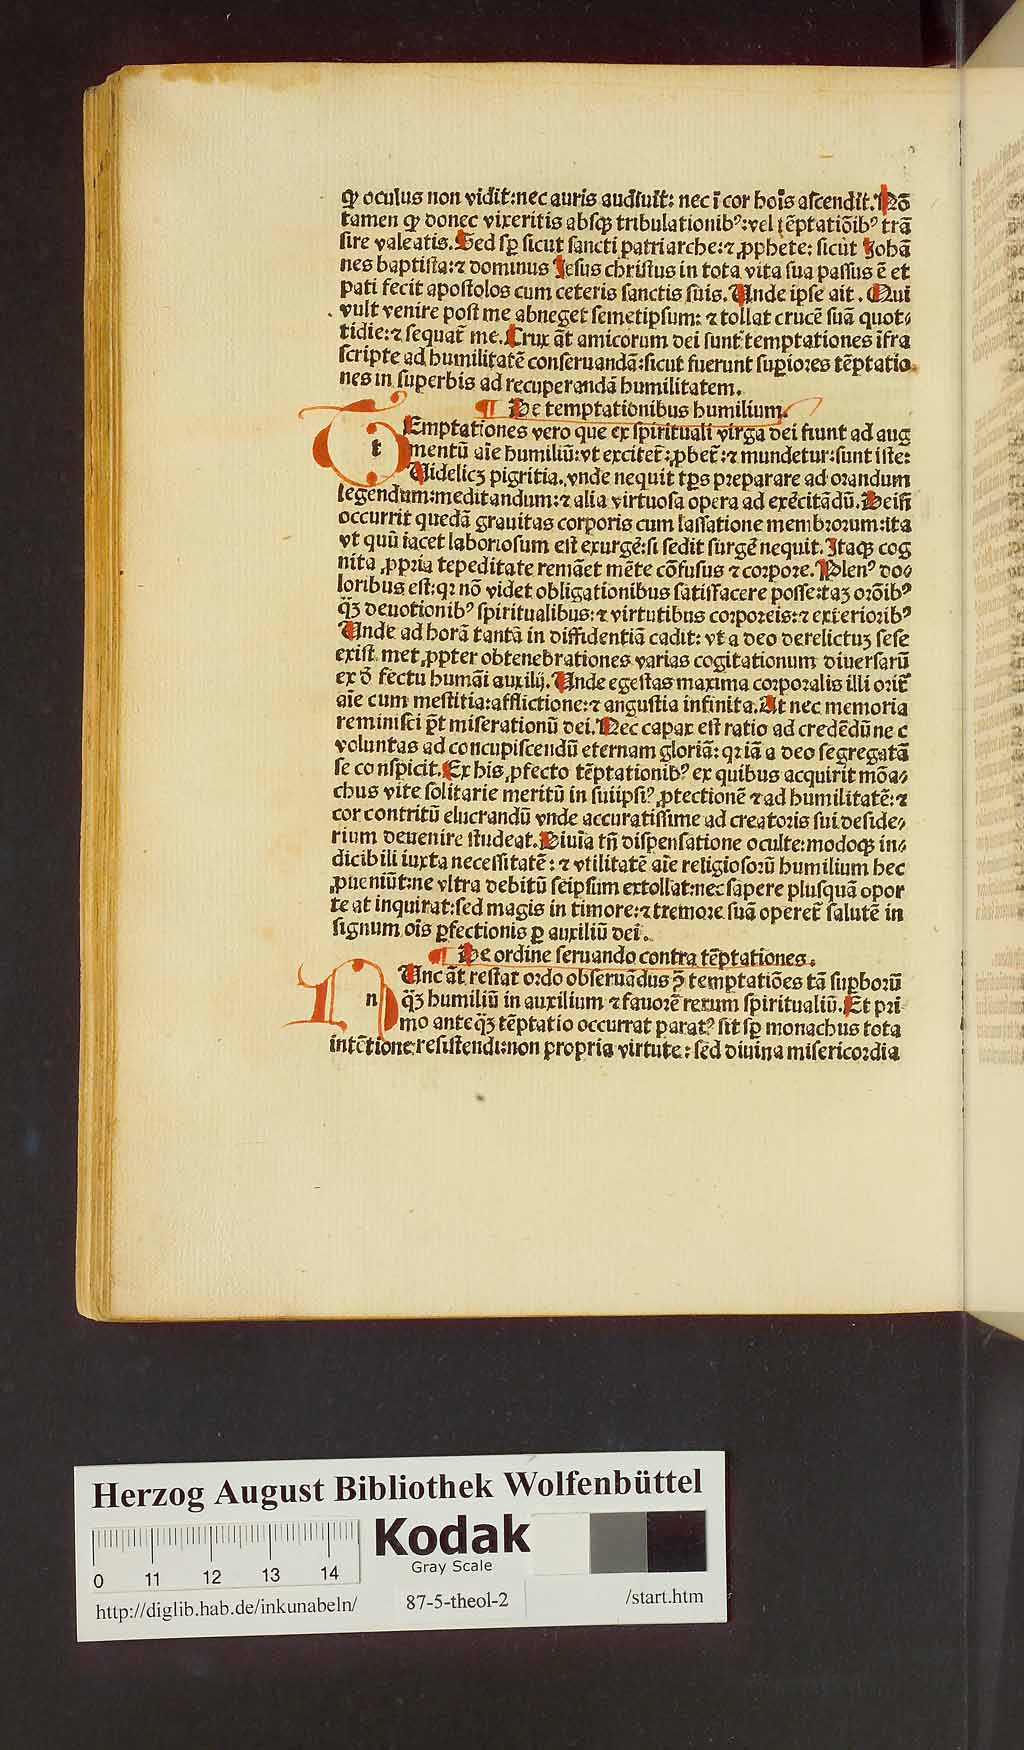 ꝙ oculus non vidit: nec auris audiuit: nec ī cor hoīs ascendit. Nō
tamen ꝙ donec vixeritis absqꝫ tribulationibꝰ: vel tēptatiōibꝰ trā
sire valeatis. Sed sꝑ sicut sancti patriarche: ⁊ ꝓphete: sicut Johā
nes baptista: ⁊ dominus Jesus christus in tota vita sua passus ē et
pati fecit apostolos cum ceteris sanctis suis. Unde ipse ait. Qui
vult venire post me abneget semetipsum: ⁊ tollat crucē suā quot⸗
tidie: ⁊ sequat᷑ me. Crux āt amicorum dei sunt temptationes īfra
scripte ad humilitatē conseruandā: sicut fuerunt supiores tēptatio
nes in superbis ad recuperandā humilitatem.
¶ De temptationibus humilium.
t
Emptationes vero que ex spirituali virga dei fiunt ad aug
mentū aīe humiliū: vt excitet᷑: ꝓbet᷑: ⁊ mundetur: sunt iste:
Uidelicꝫ pigritia. vnde nequit tꝑs preparare ad orandum
legendum: meditandum: ⁊ alia virtuosa opera ad exercitādū. Dein
occurrit quedā grauitas corporis cum lassatione membrorum: ita
vt quū iacet laboriosum est exurgē: si sedit surgē nequit. Itaqꝫ cog
nita ꝓpria tepeditate remāet mēte cōfusus ⁊ corpore. Plenꝰ do⸗
loribus est: qꝛ nō videt obligationibus satisfacere posse: taꝫ orōibꝰ
qͣꝫ deuotionibꝰ spiritualibus: ⁊ virtutibus corporeis: ⁊ exterioribꝰ
Unde ad horā tantā in diffidentiā cadit: vt a deo derelictuꝫ sese
exist. met ꝓpter obtenebrationes varias cogitationum diuersarū
ex dfectu humāi auxilij. Unde egestas maxima corporalis illi orit᷑
aīe cum mestitia: afflictione: ⁊ angustia infinita. Ut nec memoria
reminisci pōt miserationū dei. Nec capax est ratio ad credēdū nec
voluntas ad concupiscendū eternam gloriā: qꝛ iā a deo segregatā
se conspicit. Ex his ꝓfecto tēptationibꝰ ex quibus acquirit mōa⸗
chus vite solitarie meritū in suiipsiꝰ ꝓtectionē ⁊ ad humilitatē: ⁊
cor contritū elucrandū vnde accuratissime ad creatoris sui deside⸗
rium deuenire studeat. Diuīa tn̄ dispensatione oculte: modoqꝫ in⸗
dicibili iuxta necessitatē: ⁊ vtilitatē aīe religiosorū humilium hec
ꝓueniūt: ne vltra debitū seipsum extollat: nec sapere plusquā opor
teat inquirat: sed magis in timore: ⁊ tremore suā operet᷑ salutē in
signum oīs ꝑfectionis ꝑ auxiliū dei.
¶ De ordine seruando contra tēptationes.
n
Unc āt restat ordo obseruādus ꝯ̄ temptatiōes tā suꝑborū
qͣꝫ humiliū in auxilium ⁊ fauorē rerum spiritualiū. Et pri
mo anteqͣꝫ tēptatio occurrat paratꝰ sit sꝑ monachus tota
intētione resistendi: non propria virtute: sed diuina misericordia
Herzog August Bibliothek Wolfenbüttel
Kodak
Gray Scale
0 11 12 13 14
http://diglib.hab.de/inkunabeln/
87-5-theol-2
/start.htm